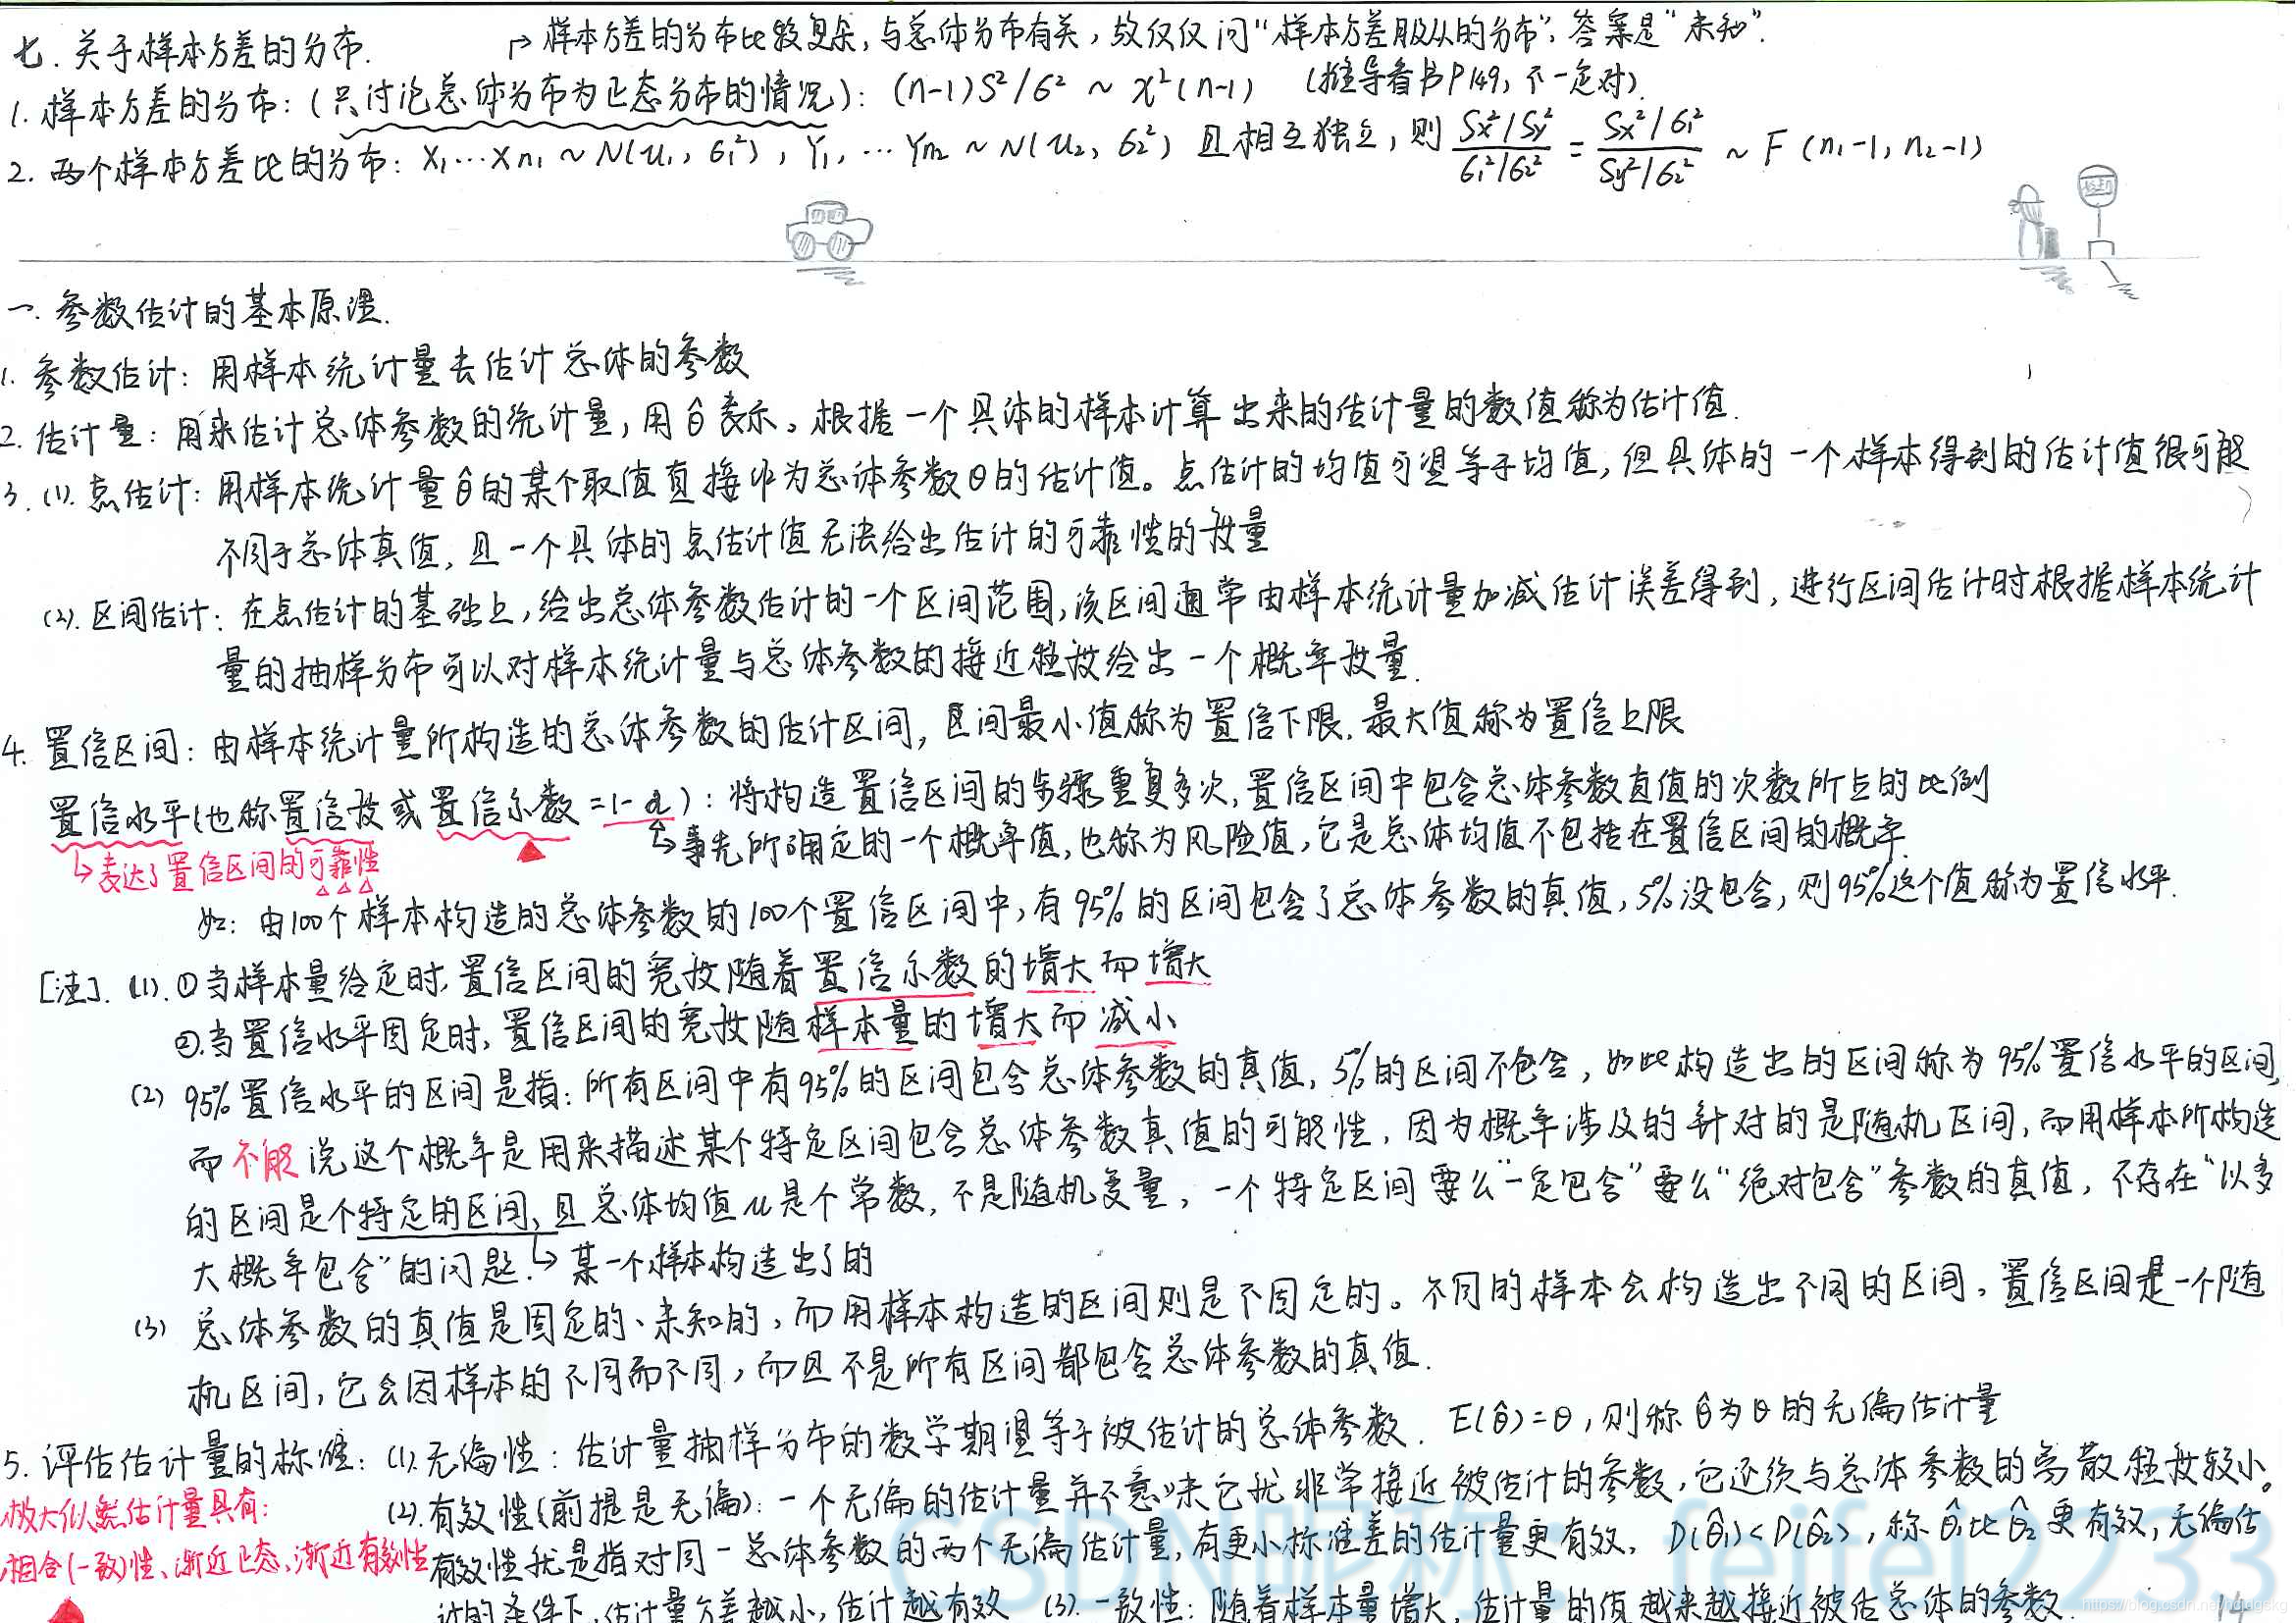 七. 关于样本方差的分布.
→ 样本方差的分布比较复杂, 与总体分布有关, 故仅仅问“样本方差服从的分布”, 答案是“未知”.
1. 样本方差的分布: (只讨论总体分布为正态分布的情况): (n-1)S²/σ² ~ χ²(n-1) (推导看书P149, 不一定对).
2. 两个样本方差比的分布: X₁…Xn₁ ~ N(u₁, σ₁²), Y₁, …Yn₂ ~ N(u₂, σ₂²) 且相互独立, 则 (Sx²/Sy²)/(σ₁²/σ₂²) = (Sx²/σ₁²)/(Sy²/σ₂²) ~ F (n₁-1, n₂-1)
一. 参数估计的基本原理.
1. 参数估计: 用样本统计量去估计总体的参数
2. 估计量: 用来估计总体参数的统计量, 用θ̂表示。根据一个具体的样本计算出来的估计量的数值称为估计值.
3. (1). 点估计: 用样本统计量θ̂的某个取值直接作为总体参数θ的估计值。点估计的均值可望等于均值, 但具体的一个样本得到的估计值很可能
不同于总体真值, 且一个具体的点估计值无法给出估计的可靠性的度量
(2). 区间估计: 在点估计的基础上, 给出总体参数估计的一个区间范围, 该区间通常由样本统计量加减估计误差得到, 进行区间估计时根据样本统计
量的抽样分布可以对样本统计量与总体参数的接近程度给出一个概率度量.
4. 置信区间: 由样本统计量所构造的总体参数的估计区间, 区间最小值称为置信下限. 最大值称为置信上限
置信水平(也称置信度或置信系数=1-α): 将构造置信区间的步骤重复多次, 置信区间中包含总体参数真值的次数所占的比例
↳表达了置信区间的可靠性
↳事先所确定的一个概率值, 也称为风险值, 它是总体均值不包括在置信区间的概率.
如: 由100个样本构造的总体参数的100个置信区间中, 有95%的区间包含了总体参数的真值, 5%没包含, 则95%这个值称为置信水平.
[注]. (1). ①当样本量给定时, 置信区间的宽度随着置信系数的增大而增大
②当置信水平固定时, 置信区间的宽度随样本量的增大而减小
(2) 95%置信水平的区间是指: 所有区间中有95%的区间包含总体参数的真值, 5%的区间不包含, 如此构造出的区间称为95%置信水平的区间,
而不能说这个概率是用来描述某个特定区间包含总体参数真值的可能性, 因为概率涉及的针对的是随机区间, 而用样本所构造
的区间是个特定的区间, 且总体均值u是个常数, 不是随机变量, 一个特定区间要么“一定包含”要么“绝对包含”参数的真值, 不存在“以多
大概率包含”的问题. ↳某一个样本构造出了的
(3) 总体参数的真值是固定的、未知的, 而用样本构造的区间则是不固定的。不同的样本会构造出不同的区间, 置信区间是一个随
机区间, 它会因样本的不同而不同, 而且不是所有区间都包含总体参数的真值.
5. 评估估计量的标准: (1). 无偏性: 估计量抽样分布的数学期望等于被估计的总体参数. E(θ̂)=θ, 则称θ̂为θ的无偏估计量
(2). 有效性(前提是无偏): 一个无偏的估计量并不意味它就非常接近被估计的参数, 它还须与总体参数的离散程度较小。
极大似然估计量具有:
有效性就是指对同一总体参数的两个无偏估计量, 有更小标准差的估计量更有效. D(θ̂₁)<D(θ̂₂), 称θ̂₁比θ̂₂更有效, 无偏估
相合(一致)性、渐近正态、渐近有效性
计的条件下, 估计量方差越小, 估计越有效 (3). 一致性: 随着样本量增大, 估计量的值越来越接近被估总体的参数.
CSDN昵称: feifei2233